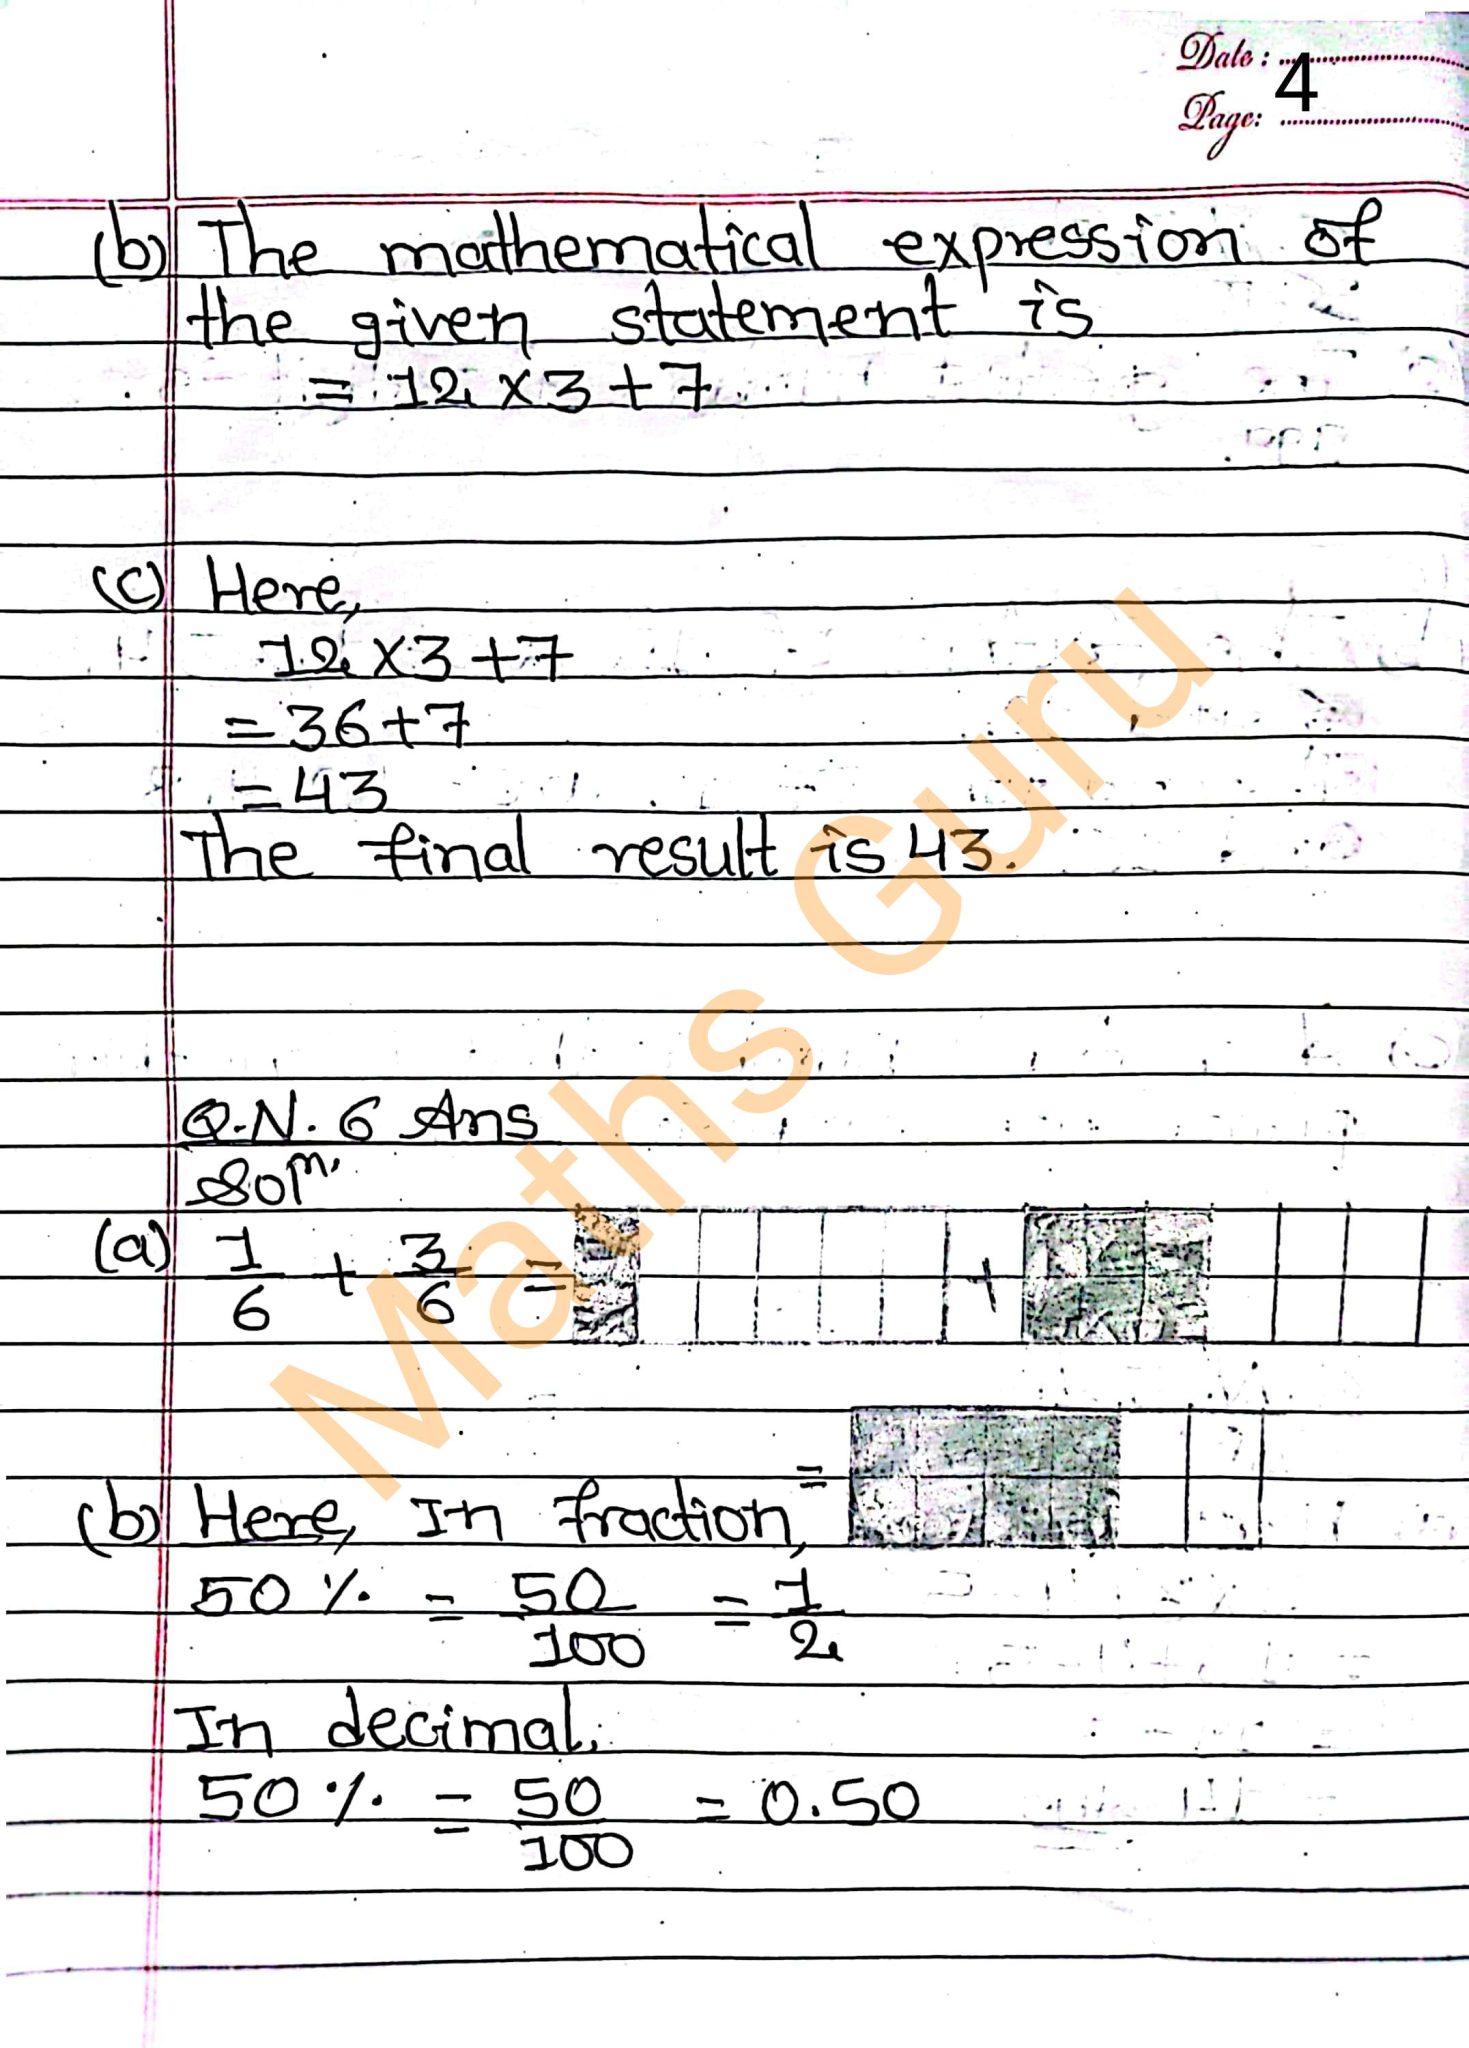 Date:
4
Page:
(b) The mathematical expression of
the given statement is
= 12 × 3 + 7
(c) Here,
12 × 3 + 7
= 36 + 7
= 43
The final result is 43.
Q.N. 6 Ans
Solⁿ.
(a) 1/6 + 3/6 = +
=
(b) Here, In fraction,
50 % = 50/100 = 1/2
In decimal.
50 % = 50/100 = 0.50
Maths Guru